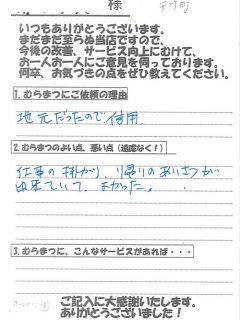 様
いつもありがとうございます。
まだまだ至らぬ当店ですので、
今後の改善、サービス向上にむけて、
お一人お一人にご意見を伺っております。
何卒、お気づきの点をぜひ教えてください。
1. むらまつにご依頼の理由
地元だったので使用
2. むらまつのよい点、悪い点(遠慮なく!)
仕事の掛けり、帰りのあいさつが
出来ていて、よかった。
3. むらまつに、こんなサービスがあれば・・・
ご記入に大感謝いたします。
ありがとうございました!